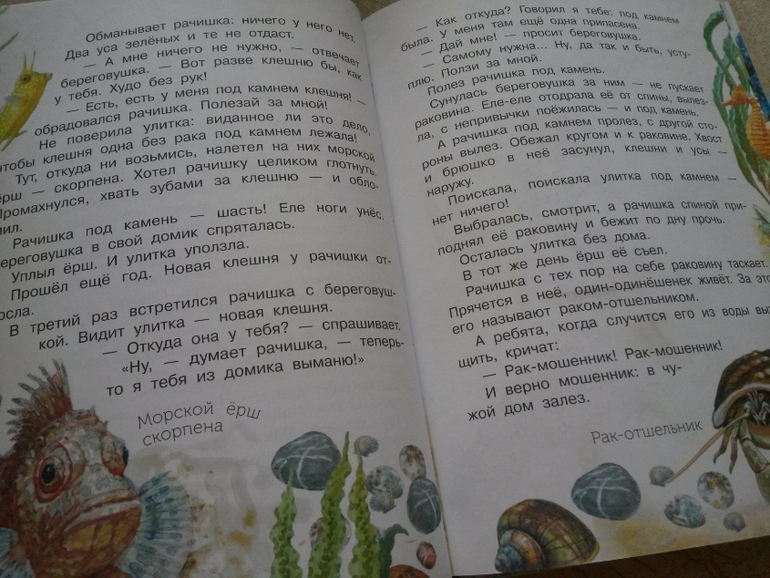 Обманывает рачишка: ничего у него нет.
Два уса зелёных и те не отдаст.
— А мне ничего не нужно, — отвечает
береговушка. — Вот разве клешню бы, как
у тебя. Худо без рук!
— Есть, есть у меня под камнем клешня! —
обрадовался рачишка. Полезай за мной!
Не поверила улитка: виданное ли это дело,
чтобы клешня одна без рака под камнем лежала!
Тут, откуда ни возьмись, налетел на них морской
ёрш — скорпена. Хотел рачишку целиком глотнуть.
Промахнулся, хвать зубами за клешню — и обло-
мил.
Рачишка под камень — шасть! Еле ноги унёс.
Береговушка в свой домик спряталась.
Уплыл ёрш. И улитка уползла.
Прошёл ещё год. Новая клешня у рачишки от-
росла.
В третий раз встретился рачишка с береговуш-
кой. Видит улитка — новая клешня.
— Откуда она у тебя? — спрашивает.
«Ну, — думает рачишка, — теперь-
то я тебя из домика выманю!»
Морской ёрш
скорпена
— Как откуда? Говорил я тебе: под камнем
была. У меня там ещё одна припасена.
— Дай мне! — просит береговушка.
— Самому нужна... Ну, да так и быть, усту-
плю. Ползи за мной.
Полез рачишка под камень.
Сунулась береговушка за ним — не пускает
раковина. Еле-еле отодрала её от спины, вылез-
ла, с непривычки поёжилась — и под камень.
А рачишка под камнем пролез, с другой сто-
роны вылез. Обежал кругом и к раковине. Хвост
и брюшко в неё засунул, клешни и усы —
наружу.
Поискала, поискала улитка под камнем —
нет ничего!
Выбралась, смотрит, а рачишка спиной при-
поднял её раковину и бежит по дну прочь.
Осталась улитка без дома.
В тот же день ёрш её съел.
Рачишка с тех пор на себе раковину таскает.
Прячется в неё, один-одинёшенек живёт. За это
его называют раком-отшельником.
А ребята, когда случится его из воды выта-
щить, кричат:
— Рак-мошенник! Рак-мошенник!
И верно мошенник: в чу-
жой дом залез.
Рак-отшельник